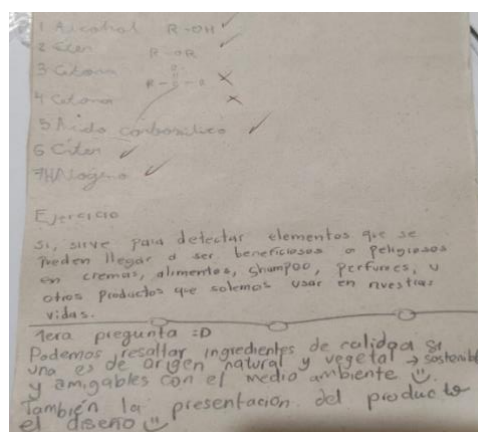 1 Alcohol R-OH ✓
2 Eter R-OR ✓
3 Cetona R- -R ✗
4 Cetona ✗
5 Acido carboxilico ✓
6 Citen ✓
7 Halogeno ✓
Ejercicio
Si, sirve para detectar elementos que se
pueden llegar a ser beneficiosos o peligrosos
en cremas, alimentos, shampoo, perfumes, u
otros productos que solemos usar en nuestras
vidas.
1era pregunta :D
Podemos resaltar ingredientes de calidad si
una es de origen natural y vegetal → sostenibl
y amigables con el medio ambiente
También la presentación del producto
el diseño